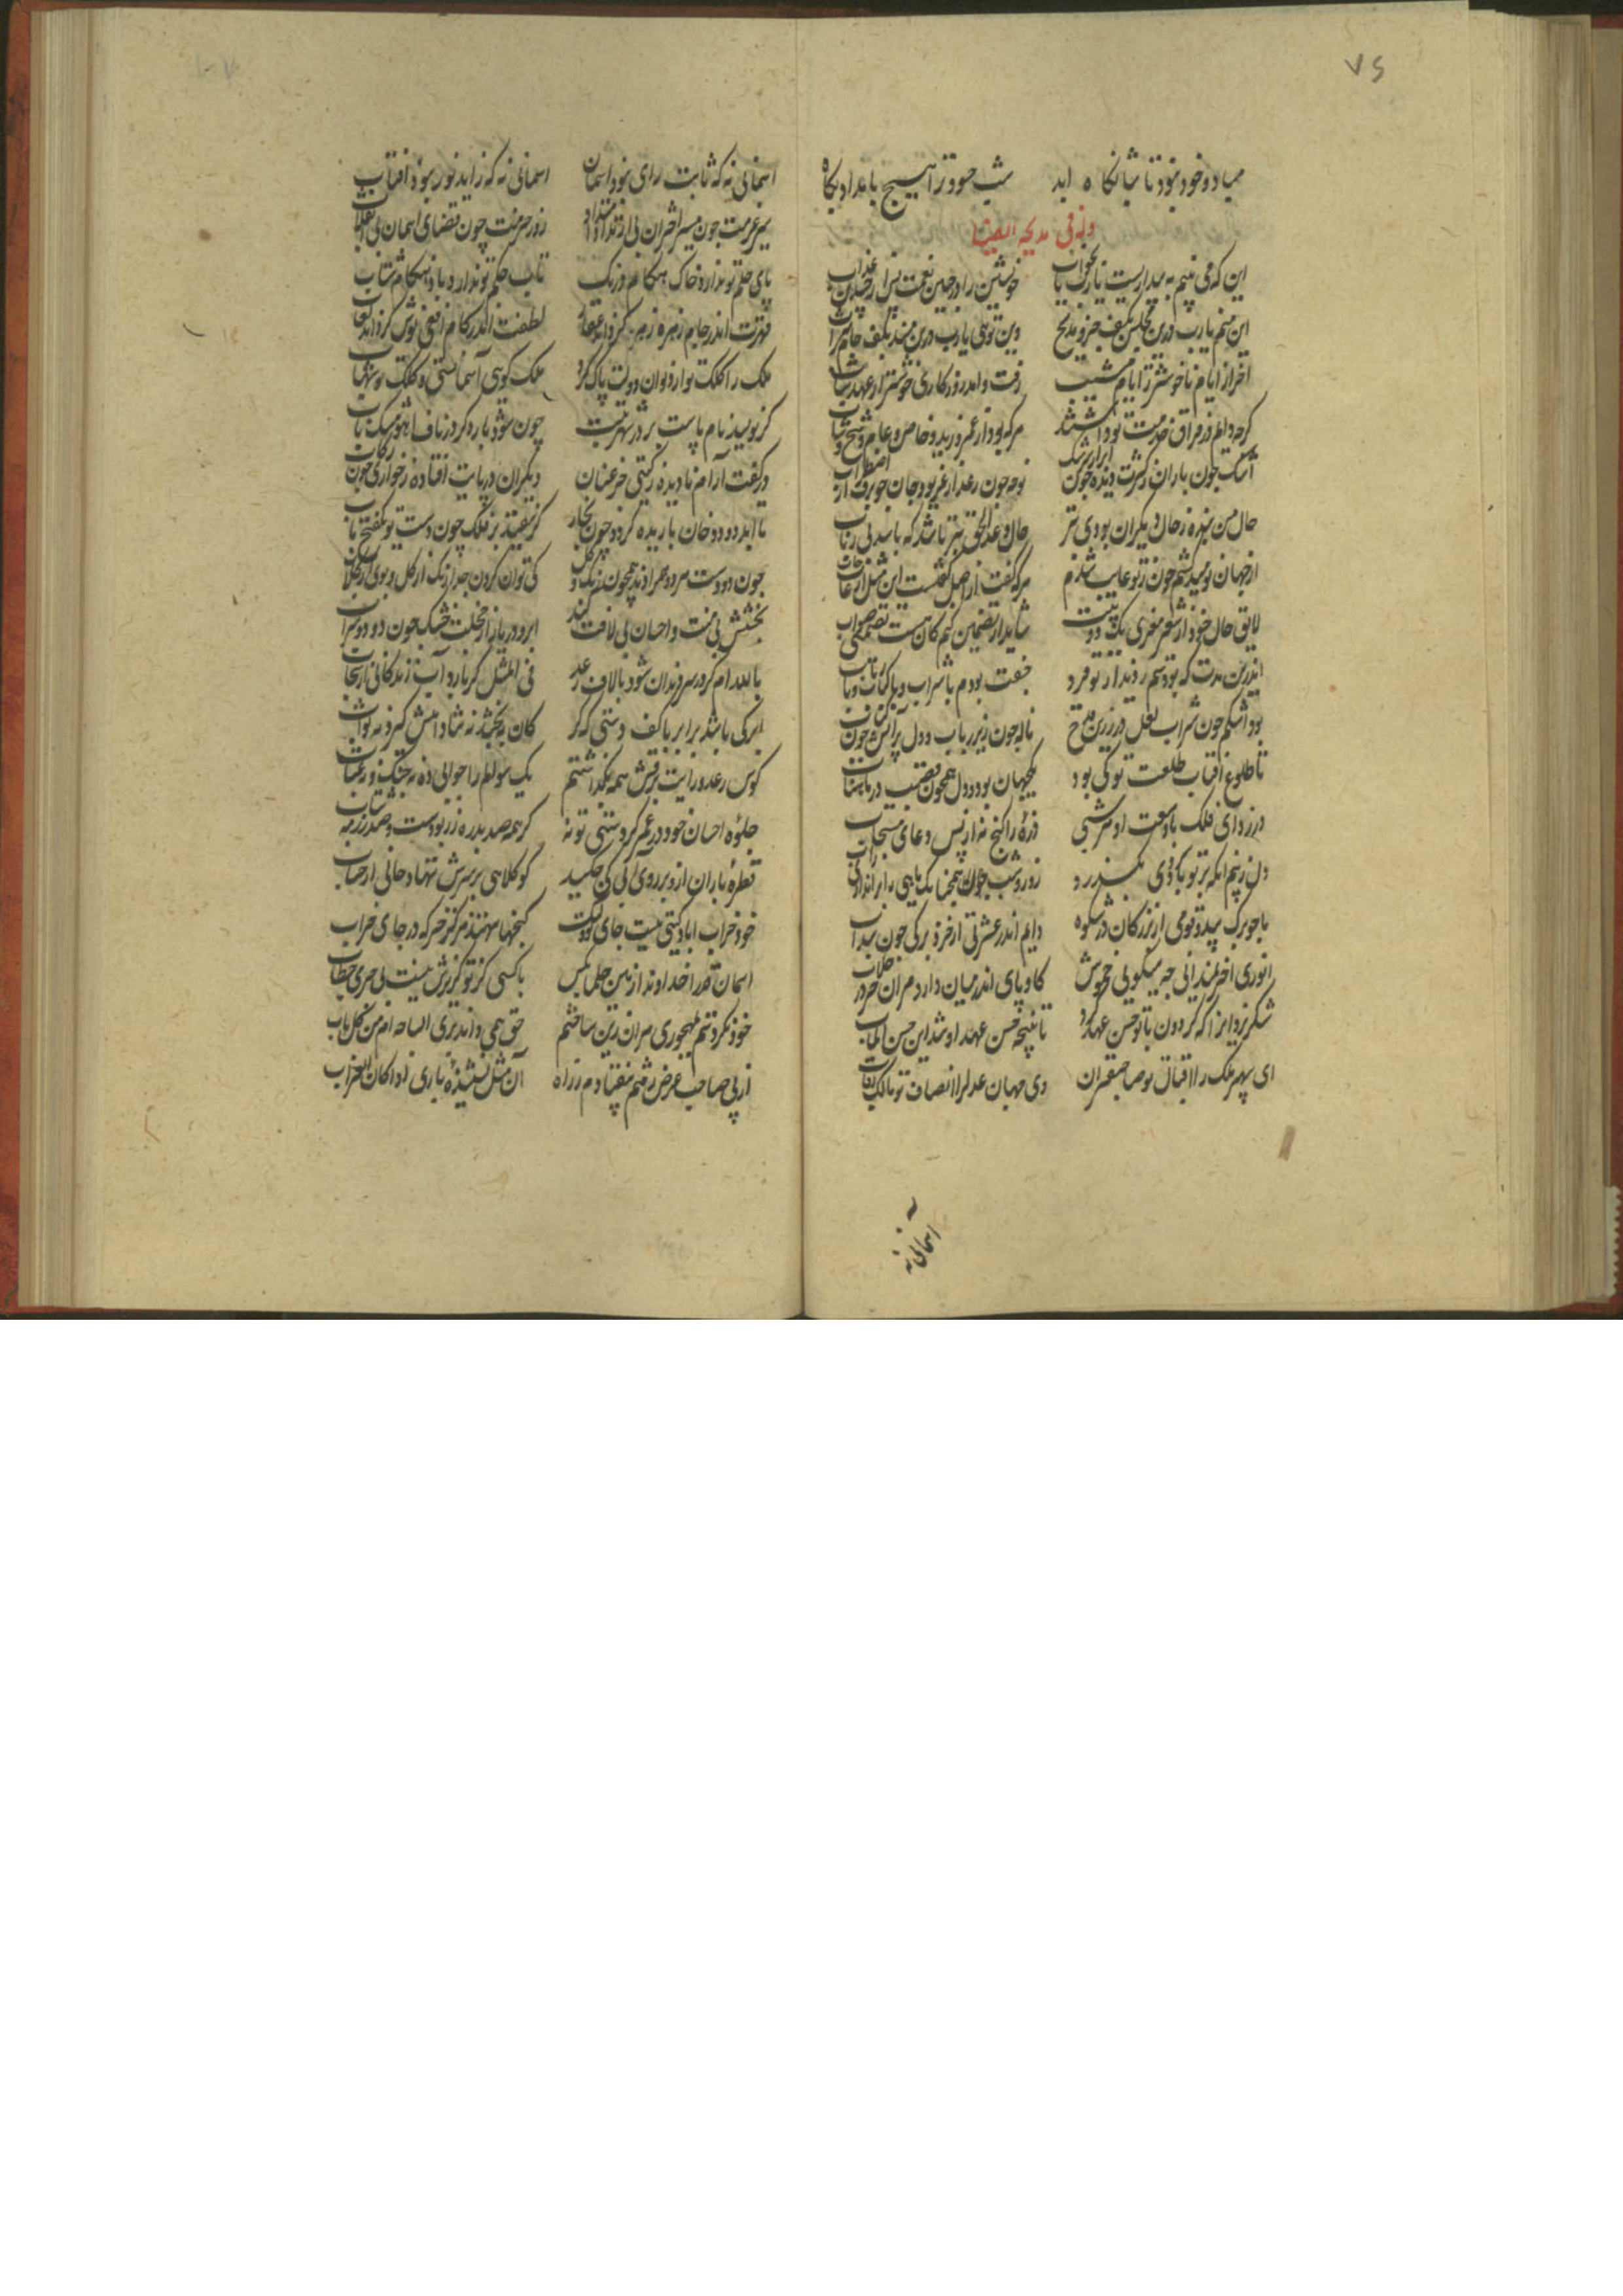 ۷۶
میاد و خود نبود تا شبانگاه ابد شب حسود ترا هیچ بامداد پگاه
وله فی مدیحه ایضا
این که می بینم به بیداریست یارب یا بخواب خویشتن را در چنین نعمت پس از چندین عذاب
این منم یارب درین مجلس بکف جزو مدیح وین توئی یارب درین مسند بکف جام شراب
آخر از ایام ناخوشتر ز ایام مشیب رفت و امد روزکاری خوشتر از عهد شباب
کرچه دایم در فراق خدمت تو داشتند هرکه بود از عمرو و زید و خاص و عام و شیخ و شاب
اشک چون باران ز کثرت دیده چون ابر از سرشک نوحه چون رعد از غریو و جان چو برق از اضطراب
حال من بنده ز حال دیگران بودی بتر حال وعد الحق بتر باشد که باشد بی رباب
از جهان نومید کشتم چون ز تو غایب شدم هرکه کفت از اصل کفتست این مثل من غاب خاب
لایق حال خود از شعر معزی یک دو بیت شاید ار تضمین کنم کان هست تضمینی صواب
اندرین مدت که بودستم ز دیدار تو فرد جفت بودم با شراب و با کباب و با رباب
بود اشکم چون شراب لعل در زرین قدح ناله چون زیر رباب و دل بر آتش چون کباب
تا طلوع آفتاب طلعت تو کی بود یکجهان بود و دل همچون قصب در ماهتاب
درزدای فلک با وسعت او هر شبی ذره را کنج نه از بس دعای مستجاب
دل ز بیم انکه بر تو باد سردی بکذرد روز و شب چون
با چو برک بید و قومی از بزرکان در شکوه دایم اندر عشرتی از خرد برکی چون سداب
انوری آخر نمیدانی چه میکوئی خموش کاو پای اندر میان دارد مران خر در خلاب
شکر یزدان را که کردون با تو حسن عهد کرد تا نتیجه حسن عهد او شد این حسن المآب
ای سپهر ملک را اقبال تو صاحبقران وی جهان عدل را انصاف تو مالک رقاب
آسمانی نه
آسمانی نه که ثابت رای نبود اسمان آسمانی نه که زاید نور نبود افتاب
سیر عزمت چون مسیر اختران بی ارتداد زور حزمت چون قضای اسمان بی انقلاب
پای حلم تو ندارد خاک هنکام درنک تاب حکم تو ندارد باد هنکام شتاب
قهرت اندر جام زهره زهر کرداند عقار لطفت اندر کام افعی نوش کرداند لعاب
ملک را کلک تو از دیوان دولت پاک کرد ملک کوئی آسمانستی و کلک تو شهاب
کر نویسد نام پاست بر در شهر تبت چون شود باره کرد در ناف آهو مشک ناب
در کفت آرام نادیده ز کیتی جز عنان دیکران در پایت افتاده ز خواری چون رکاب
تا ابد دود دخان بارنده کردد چون بخار کر بیفتد بر فلک چون دست تو یک فتح باب
جود و دستت هر دو همزادند همچون رنک و کل کی توان کردن جدا رنک از کل و بوی از کلاب
بخشش بی منت و احسان بی لافت کند ابر و دریا را ز خجلت خشک چون دود و سراب
با لله ار ام کرد سرفرازان شود با لاف رعد فی المثل کر بارد و آب زندکانی از سحاب
ابر کی باشد برابر با کف دستی که کر کان ببخشد نه مثاب
کوس رعد و رایت برقش همه بکذاشتم یک سوالم را جوابی ده نه جنک و نه عتاب
جلوه احسان خود در عمر کردستی تو نه کر همه صد بدره زر بودست و صد رزمه ثیاب
قطره باران ازو بر روی آبی کی چکید کو کلاهی بر سرش ننهاد حالی از حباب
خود خراب اباد کیتی نیست جای تو ولیک کنجها ننهند هرکز جز که در جای خراب
اسمان قدرا خداوندا ازین چاکر با کسی کز تو کزیرش نیست بی جرمی خطاب
خود نکردستم بمهجوری مران زین ساختم حق همی داند بری الساحه ام من کل باب
از پی صاحب غرض رفتم بیفتادم ز راه آن مثل نشنیدهٔ باری اذا کان الغراب